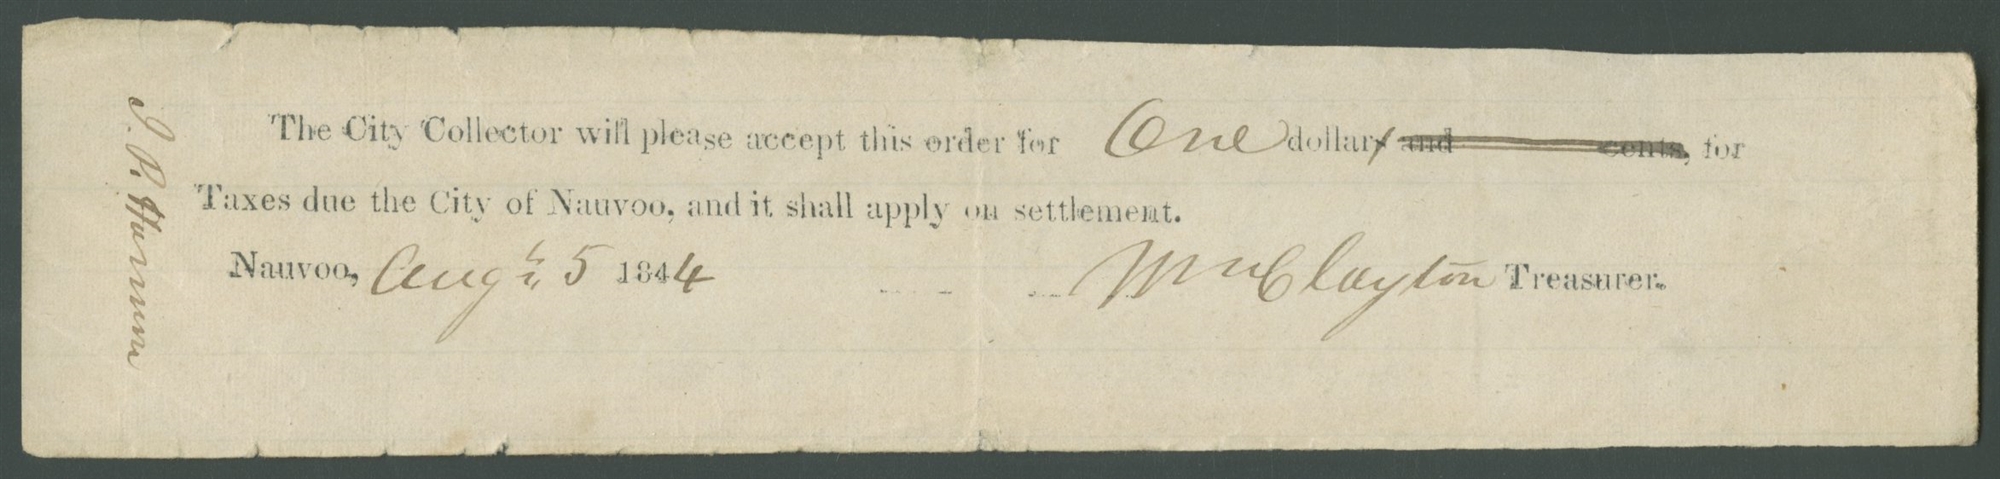 The City Collector will please accept this order for One dollar and cents, for
Taxes due the City of Nauvoo, and it shall apply on settlement.
Nauvoo, Augt. 5 1844 Wm Clayton Treasurer.
J. P. Harmon